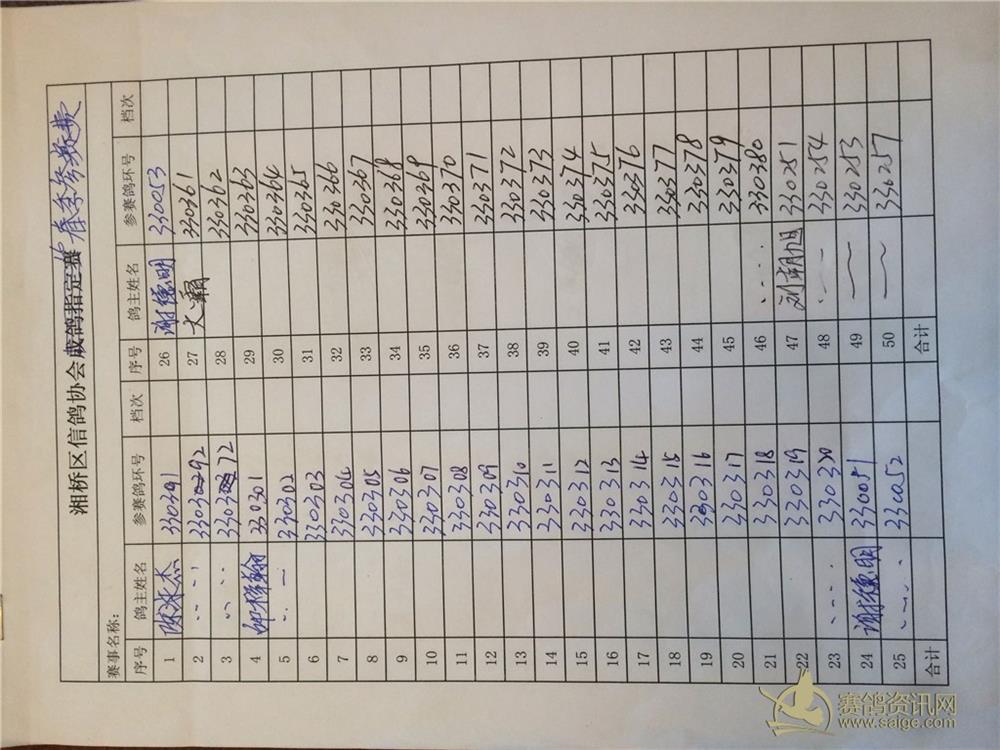 湘桥区信鸽协会成鸽指定赛 春季参赛费
赛事名称：
序号 鸽主姓名 参赛鸽环号 档次 序号 鸽主姓名 参赛鸽环号 档次
1 陈冰杰 330391 26 谢德明 330053
2 330392 27 大霸 330361
3 330372 28 330362
4 330301 29 330363
5 330302 30 330364
6 330303 31 330365
7 330304 32 330366
8 330305 33 330367
9 330306 34 330368
10 330307 35 330369
11 330308 36 330370
12 330309 37 330371
13 330310 38 330372
14 330311 39 330373
15 330312 40 330374
16 330313 41 330375
17 330314 42 330376
18 330315 43 330377
19 330316 44 330378
20 330317 45 330379
21 330318 46 330380
22 330319 47 刘朝旭 330251
23 330320 48 330254
24 谢德明 330051 49 330253
25 330052 50 330257
合计 合计
赛鸽资讯网
www.saige.com